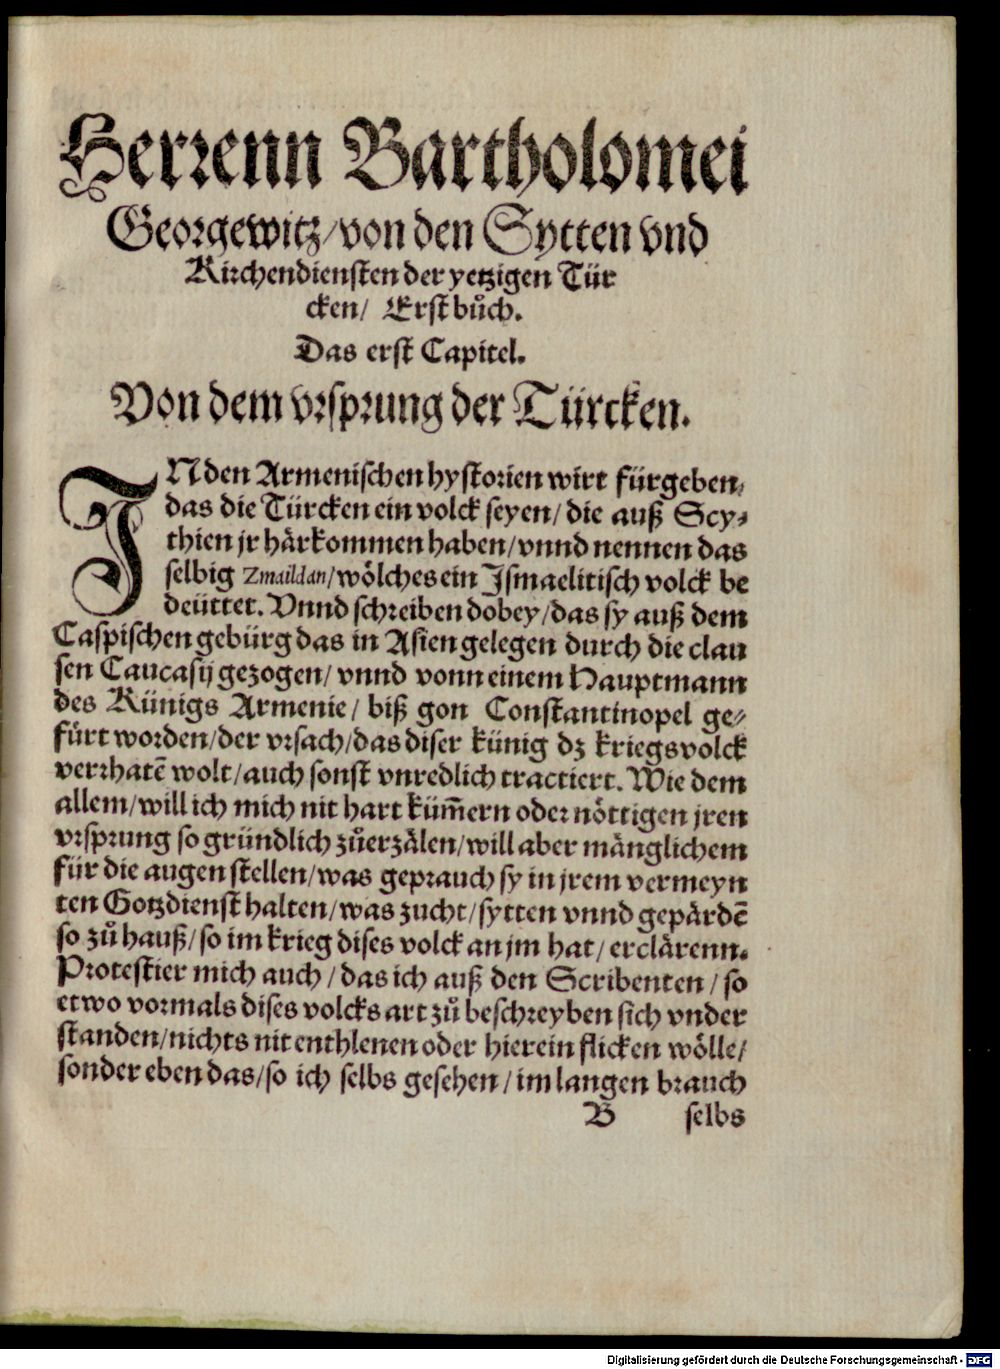 Herrenn Bartholomei
Georgewitz/von den Sytten vnd
Kirchendiensten der yetzigen Tür
cken/ Erst bůch.
Das erst Capitel.
Von dem vrsprung der Türcken.
IN den Armenischen hystorien wirt fürgeben,
das die Türcken ein volck seyen/ die auß Scy⸗
thien jr härkommen haben/vnnd nennen das
selbig Zmaildan/wölches ein Ismaelitisch volck be
deüttet. Vnnd schreiben dobey/das sy auß dem
Caspischen gebürg das in Asien gelegen durch die clau
sen Caucasij gezogen/ vnnd vonn einem Hauptmann
des Künigs Armenie/ biß gon Constantinopel ge⸗
fürt worden/der vrsach/das diser künig dz kriegsvolck
verrhatē wolt/auch sonst vnredlich tractiert. Wie dem
allem/will ich mich nit hart küm̄ern oder nöttigen jren
vrsprung so gründlich zůerzälen/will aber mänglichem
für die augen stellen/was geprauch sy in jrem vermeyn
ten Gotzdienst halten/was zucht/sytten vnnd gepärdē
so zů hauß/so im krieg dises volck an jm hat/ erclärenn.
Protestier mich auch/das ich auß den Scribenten/so
etwo vormals dises volcks art zů beschreyben sich vnder
standen/nichts nit enthlenen oder hierein flicken wölle/
sonder eben das/so ich selbs gesehen/im langen brauch
B selbs
Digitalisierung gefördert durch die Deutsche Forschungsgemeinschaft - DFG